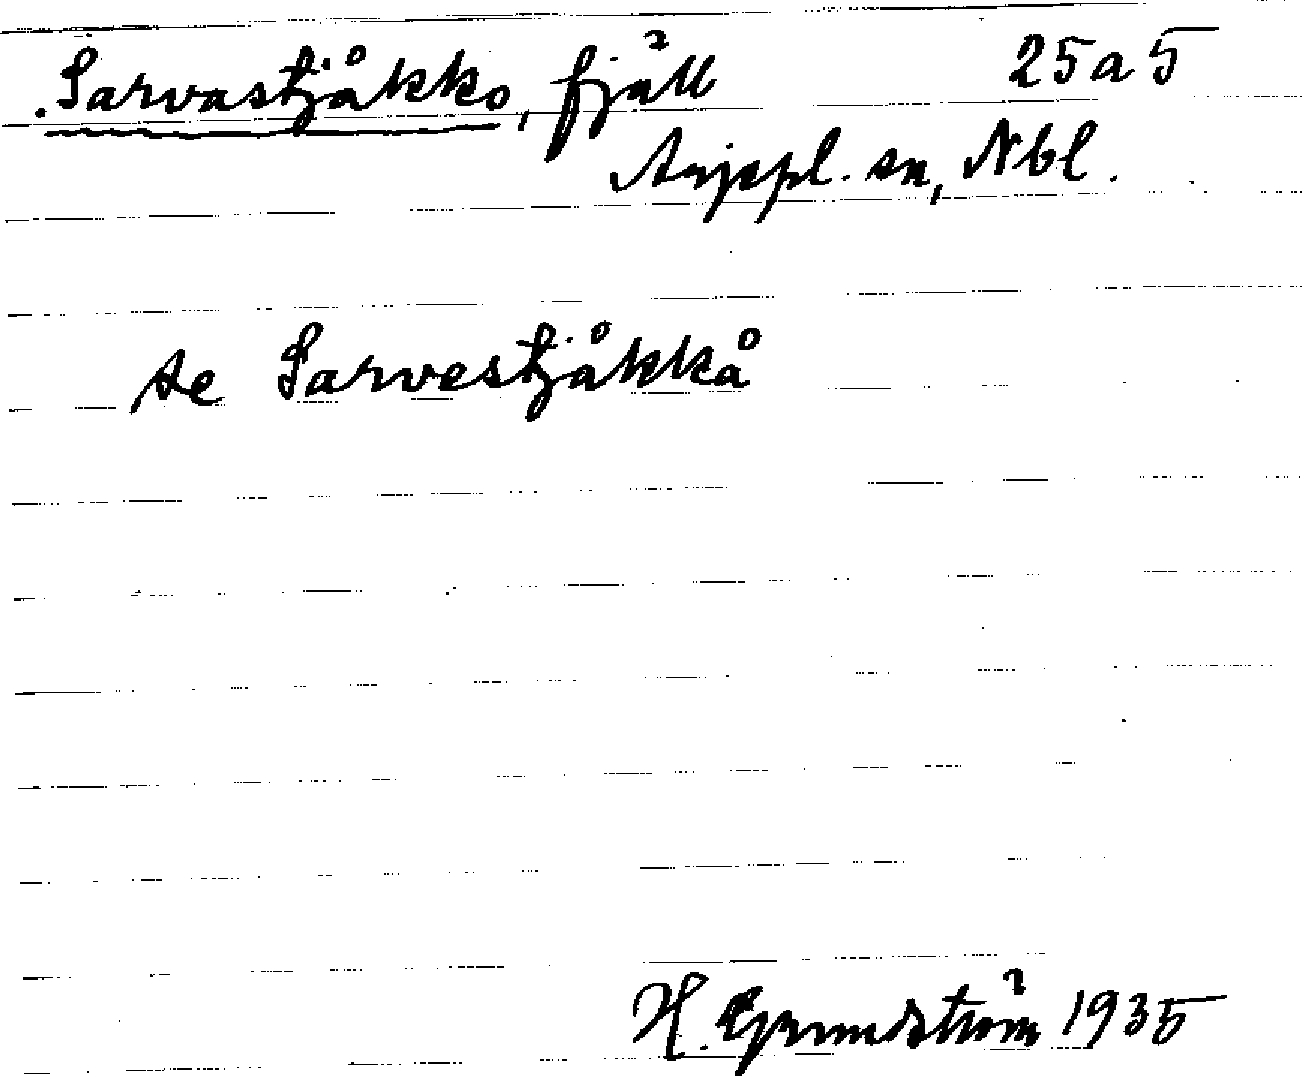 Sarvastjåkko, fjäll 25a5
Arjepl. sn, Nbl.
se Sarvestjåkkå
H. Grundström 1935